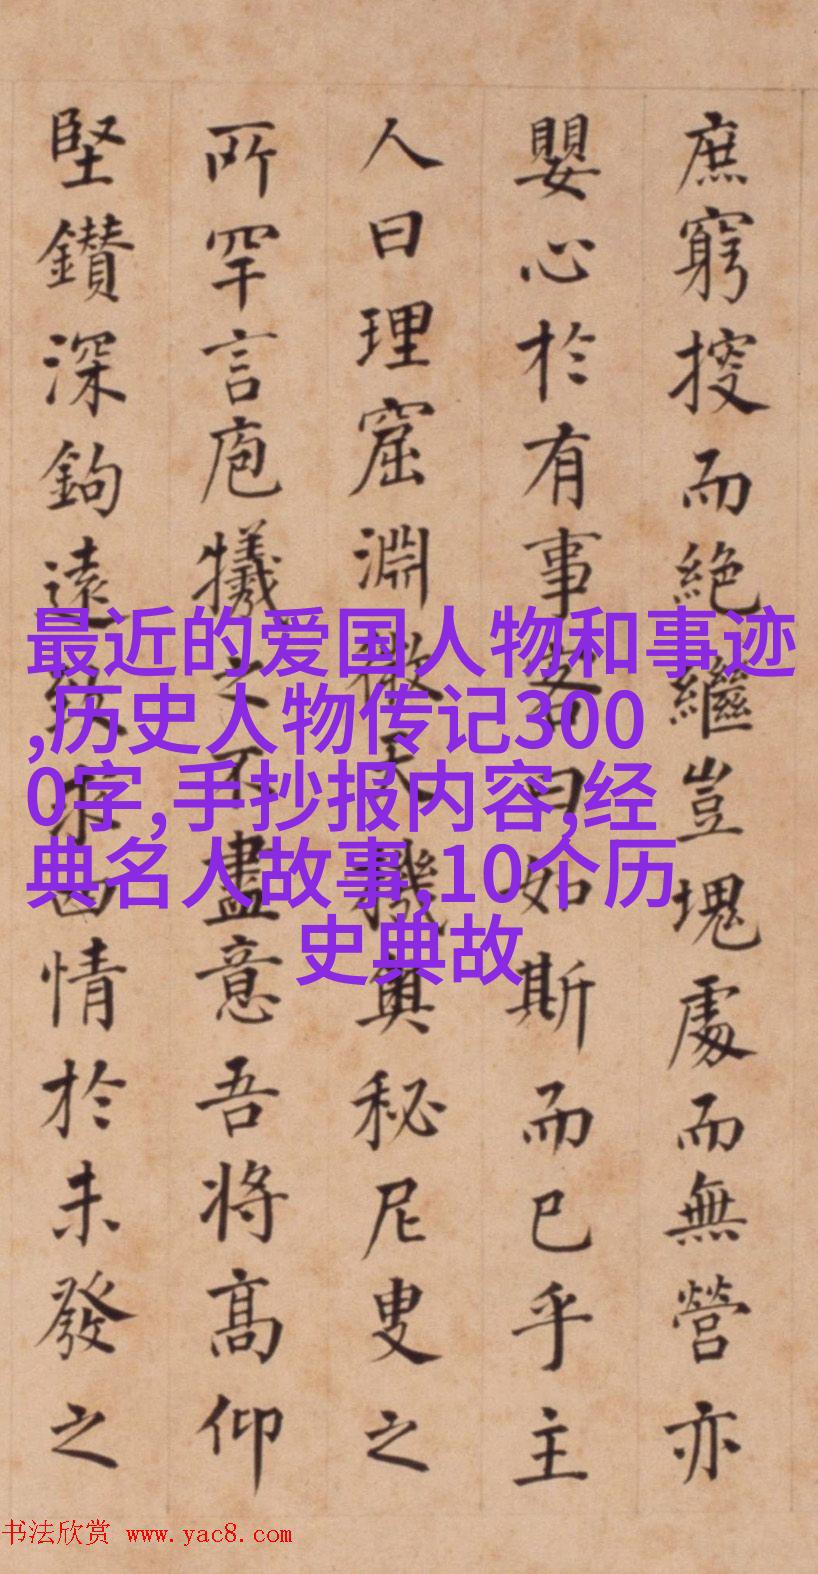 庶窮搜而絶繼豈塊處而無營亦
嬰心於有事客曰如斯而已乎主
人曰理窟淵微天機奥秘尼叟之
所罕言庖犧之不盡意吾將髙仰
堅鑽深鉤遠致求情於未發之
最近的爱国人物和事迹
,历史人物传记300
0字,手抄报内容,经
典名人故事,10个历
史典故
书法欣赏 www.yac8.com